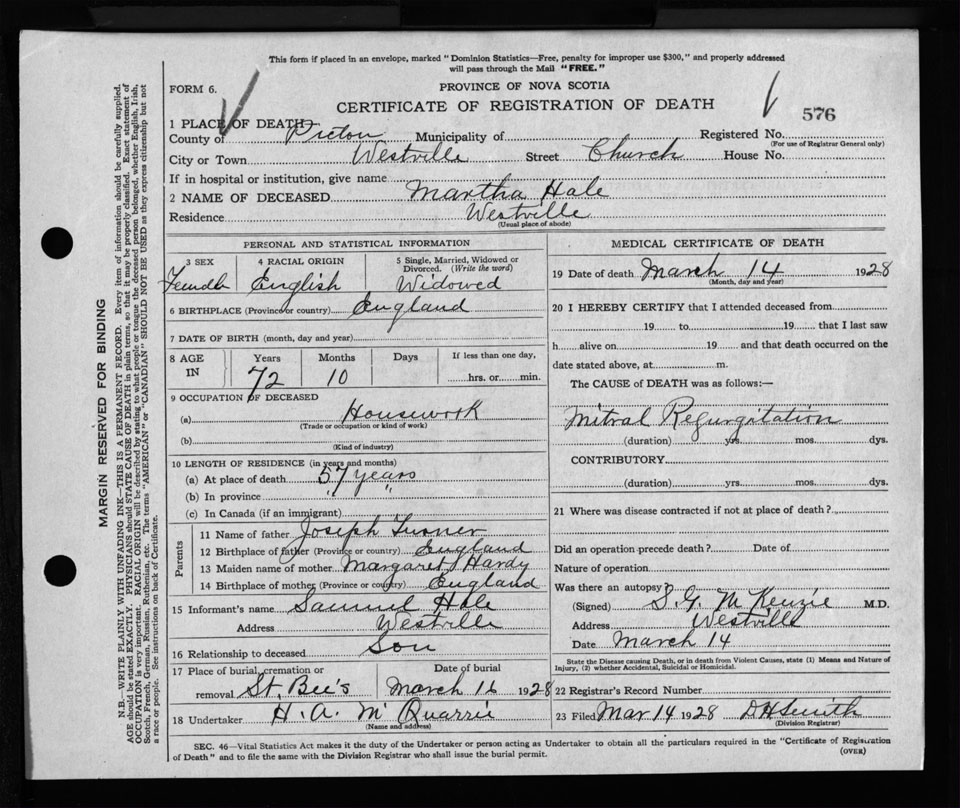 This form if placed in an envelope, marked "Dominion Statistics—Free, penalty for improper use $300," and properly addressed
will pass through the Mail "FREE."
FORM 6.
PROVINCE OF NOVA SCOTIA
CERTIFICATE OF REGISTRATION OF DEATH
576
1 PLACE OF DEATH
County of Pictou Municipality of Registered No.
(For use of Registrar General only)
City or Town Westville Street Church House No.
If in hospital or institution, give name
2 NAME OF DECEASED Martha Hale
Residence Westville
(Usual place of abode)
PERSONAL AND STATISTICAL INFORMATION
3 SEX 4 RACIAL ORIGIN 5 Single, Married, Widowed or Divorced. (Write the word)
Female English Widowed
6 BIRTHPLACE (Province or country) England
7 DATE OF BIRTH (month, day and year)
8 AGE IN Years Months Days If less than one day,
72 10 hrs. or min.
9 OCCUPATION OF DECEASED
(a) Housework
(Trade or occupation or kind of work)
(b)
(Kind of industry)
10 LENGTH OF RESIDENCE (in years and months)
(a) At place of death 57 years
(b) In province " "
(c) In Canada (if an immigrant)
Parents
11 Name of father Joseph Turner
12 Birthplace of father (Province or country) England
13 Maiden name of mother Margaret Hardy
14 Birthplace of mother (Province or country) England
15 Informant's name Samuel Hale
Address Westville
16 Relationship to deceased Son
17 Place of burial, cremation or removal St. Bee's Date of burial March 16 1928
18 Undertaker H. A. McQuarrie
(Name and address)
MEDICAL CERTIFICATE OF DEATH
19 Date of death March 14 1928
(Month, day and year)
20 I HEREBY CERTIFY that I attended deceased from
19 to 19 that I last saw
h alive on 19 and that death occurred on the
date stated above, at m.
The CAUSE of DEATH was as follows:—
Mitral Regurgitation
(duration) yrs. mos. dys.
CONTRIBUTORY
(duration) yrs. mos. dys.
21 Where was disease contracted if not at place of death?
Did an operation precede death? Date of
Nature of operation
Was there an autopsy?
(Signed) S. G. McKenzie M.D.
Address Westville
Date March 14
State the Disease causing Death, or in death from Violent Causes, state (1) Means and Nature of
Injury, (2) whether Accidental, Suicidal or Homicidal.
22 Registrar's Record Number
23 Filed Mar 14 1928 D H Smith
(Division Registrar)
SEC. 46—Vital Statistics Act makes it the duty of the Undertaker or person acting as Undertaker to obtain all the particulars required in the "Certificate of Registration
of Death" and to file the same with the Division Registrar who shall issue the burial permit.
(OVER)
MARGIN RESERVED FOR BINDING
N.B.—WRITE PLAINLY WITH UNFADING INK—THIS IS A PERMANENT RECORD. Every item of information should be carefully supplied.
AGE should be stated EXACTLY. PHYSICIANS should STATE CAUSE OF DEATH in plain terms, so that it may be properly classified. Exact statement of
OCCUPATION is very important. RACIAL ORIGIN will be described by stating to what people or tongue the deceased person belonged, whether English, Irish,
Scotch, French, German, Russian, Ruthenian, etc. The terms "AMERICAN" or "CANADIAN" SHOULD NOT BE USED as they express citizenship but not
a race or people. See instructions on back of Certificate.